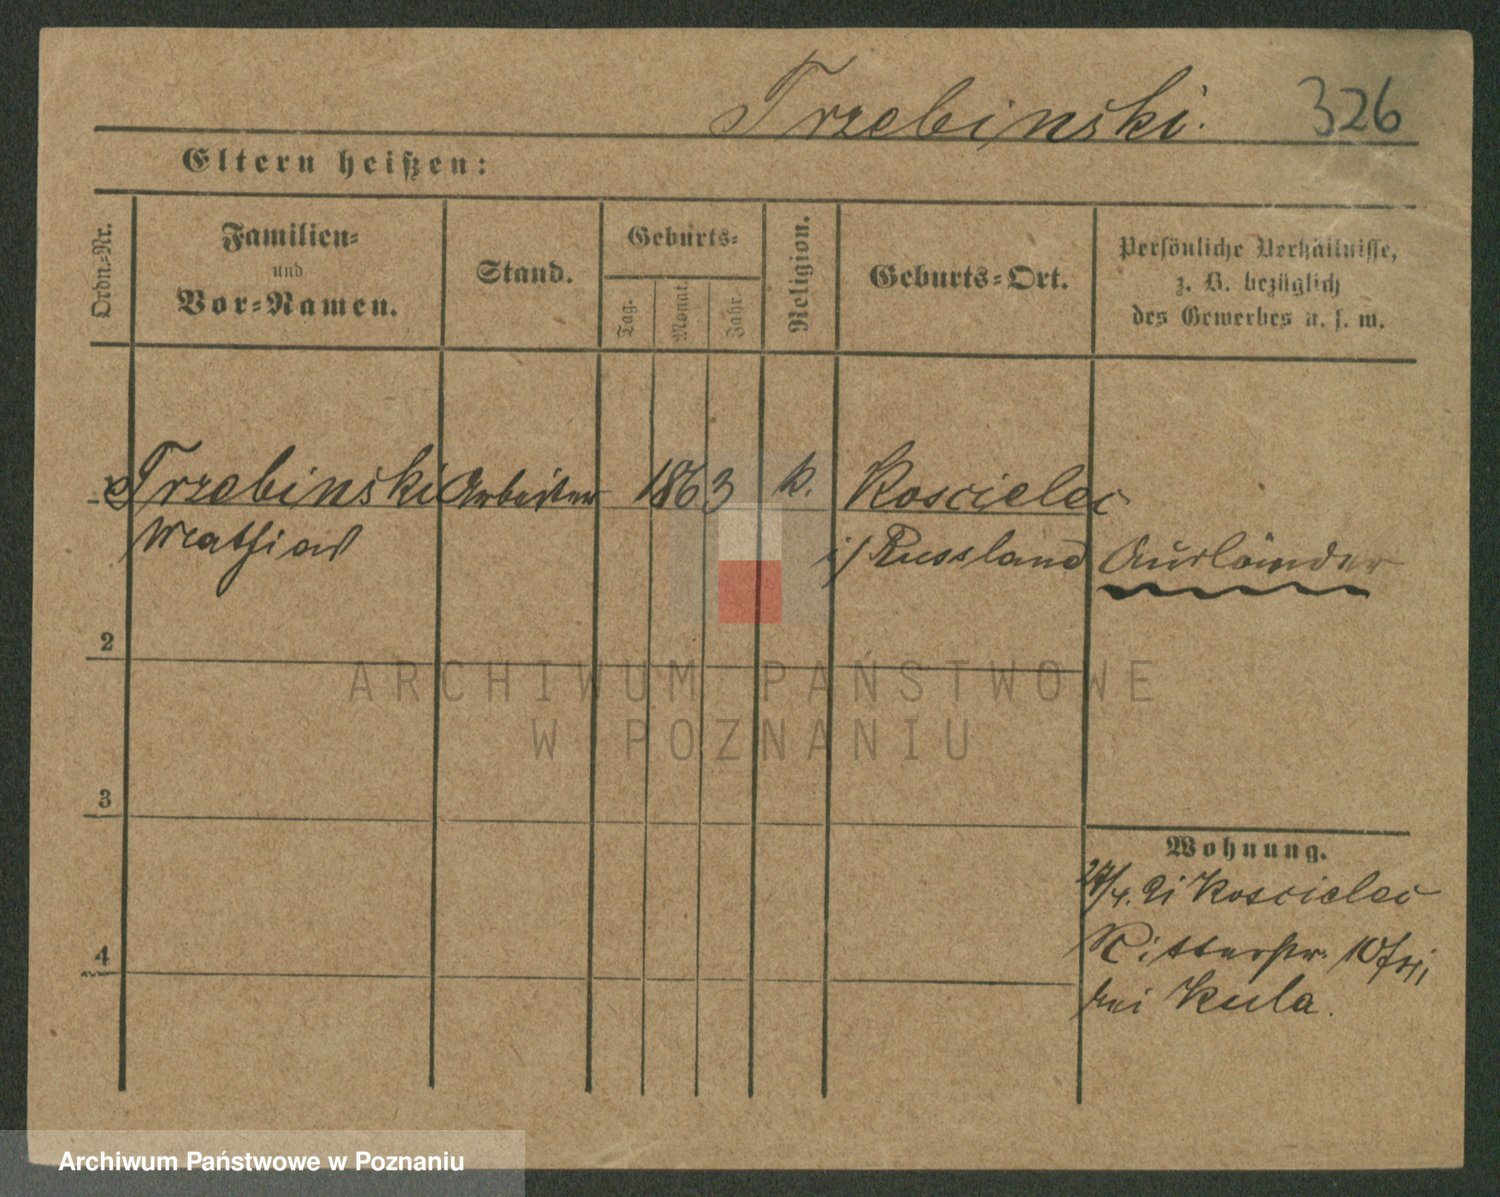 Trzebinski. 326
Eltern heißen:
Ordn.-Nr.
Familien-
und
Vor-Namen.
Stand.
Geburts-
Tag.
Monat.
Jahr.
Religion.
Geburts-Ort.
Persönliche Verhältnisse,
z. B. bezüglich
des Gewerbes u. s. w.
1 Trzebinski Arbeiter 1863 k. Koscielec
Mathias i/ Russland Ausländer
2
ARCHIWUM PAŃSTWOWE
W POZNANIU
3
Wohnung.
27/4. Koscielec
4
Ritterstr. 10
bei Kula.
Archiwum Państwowe w Poznaniu